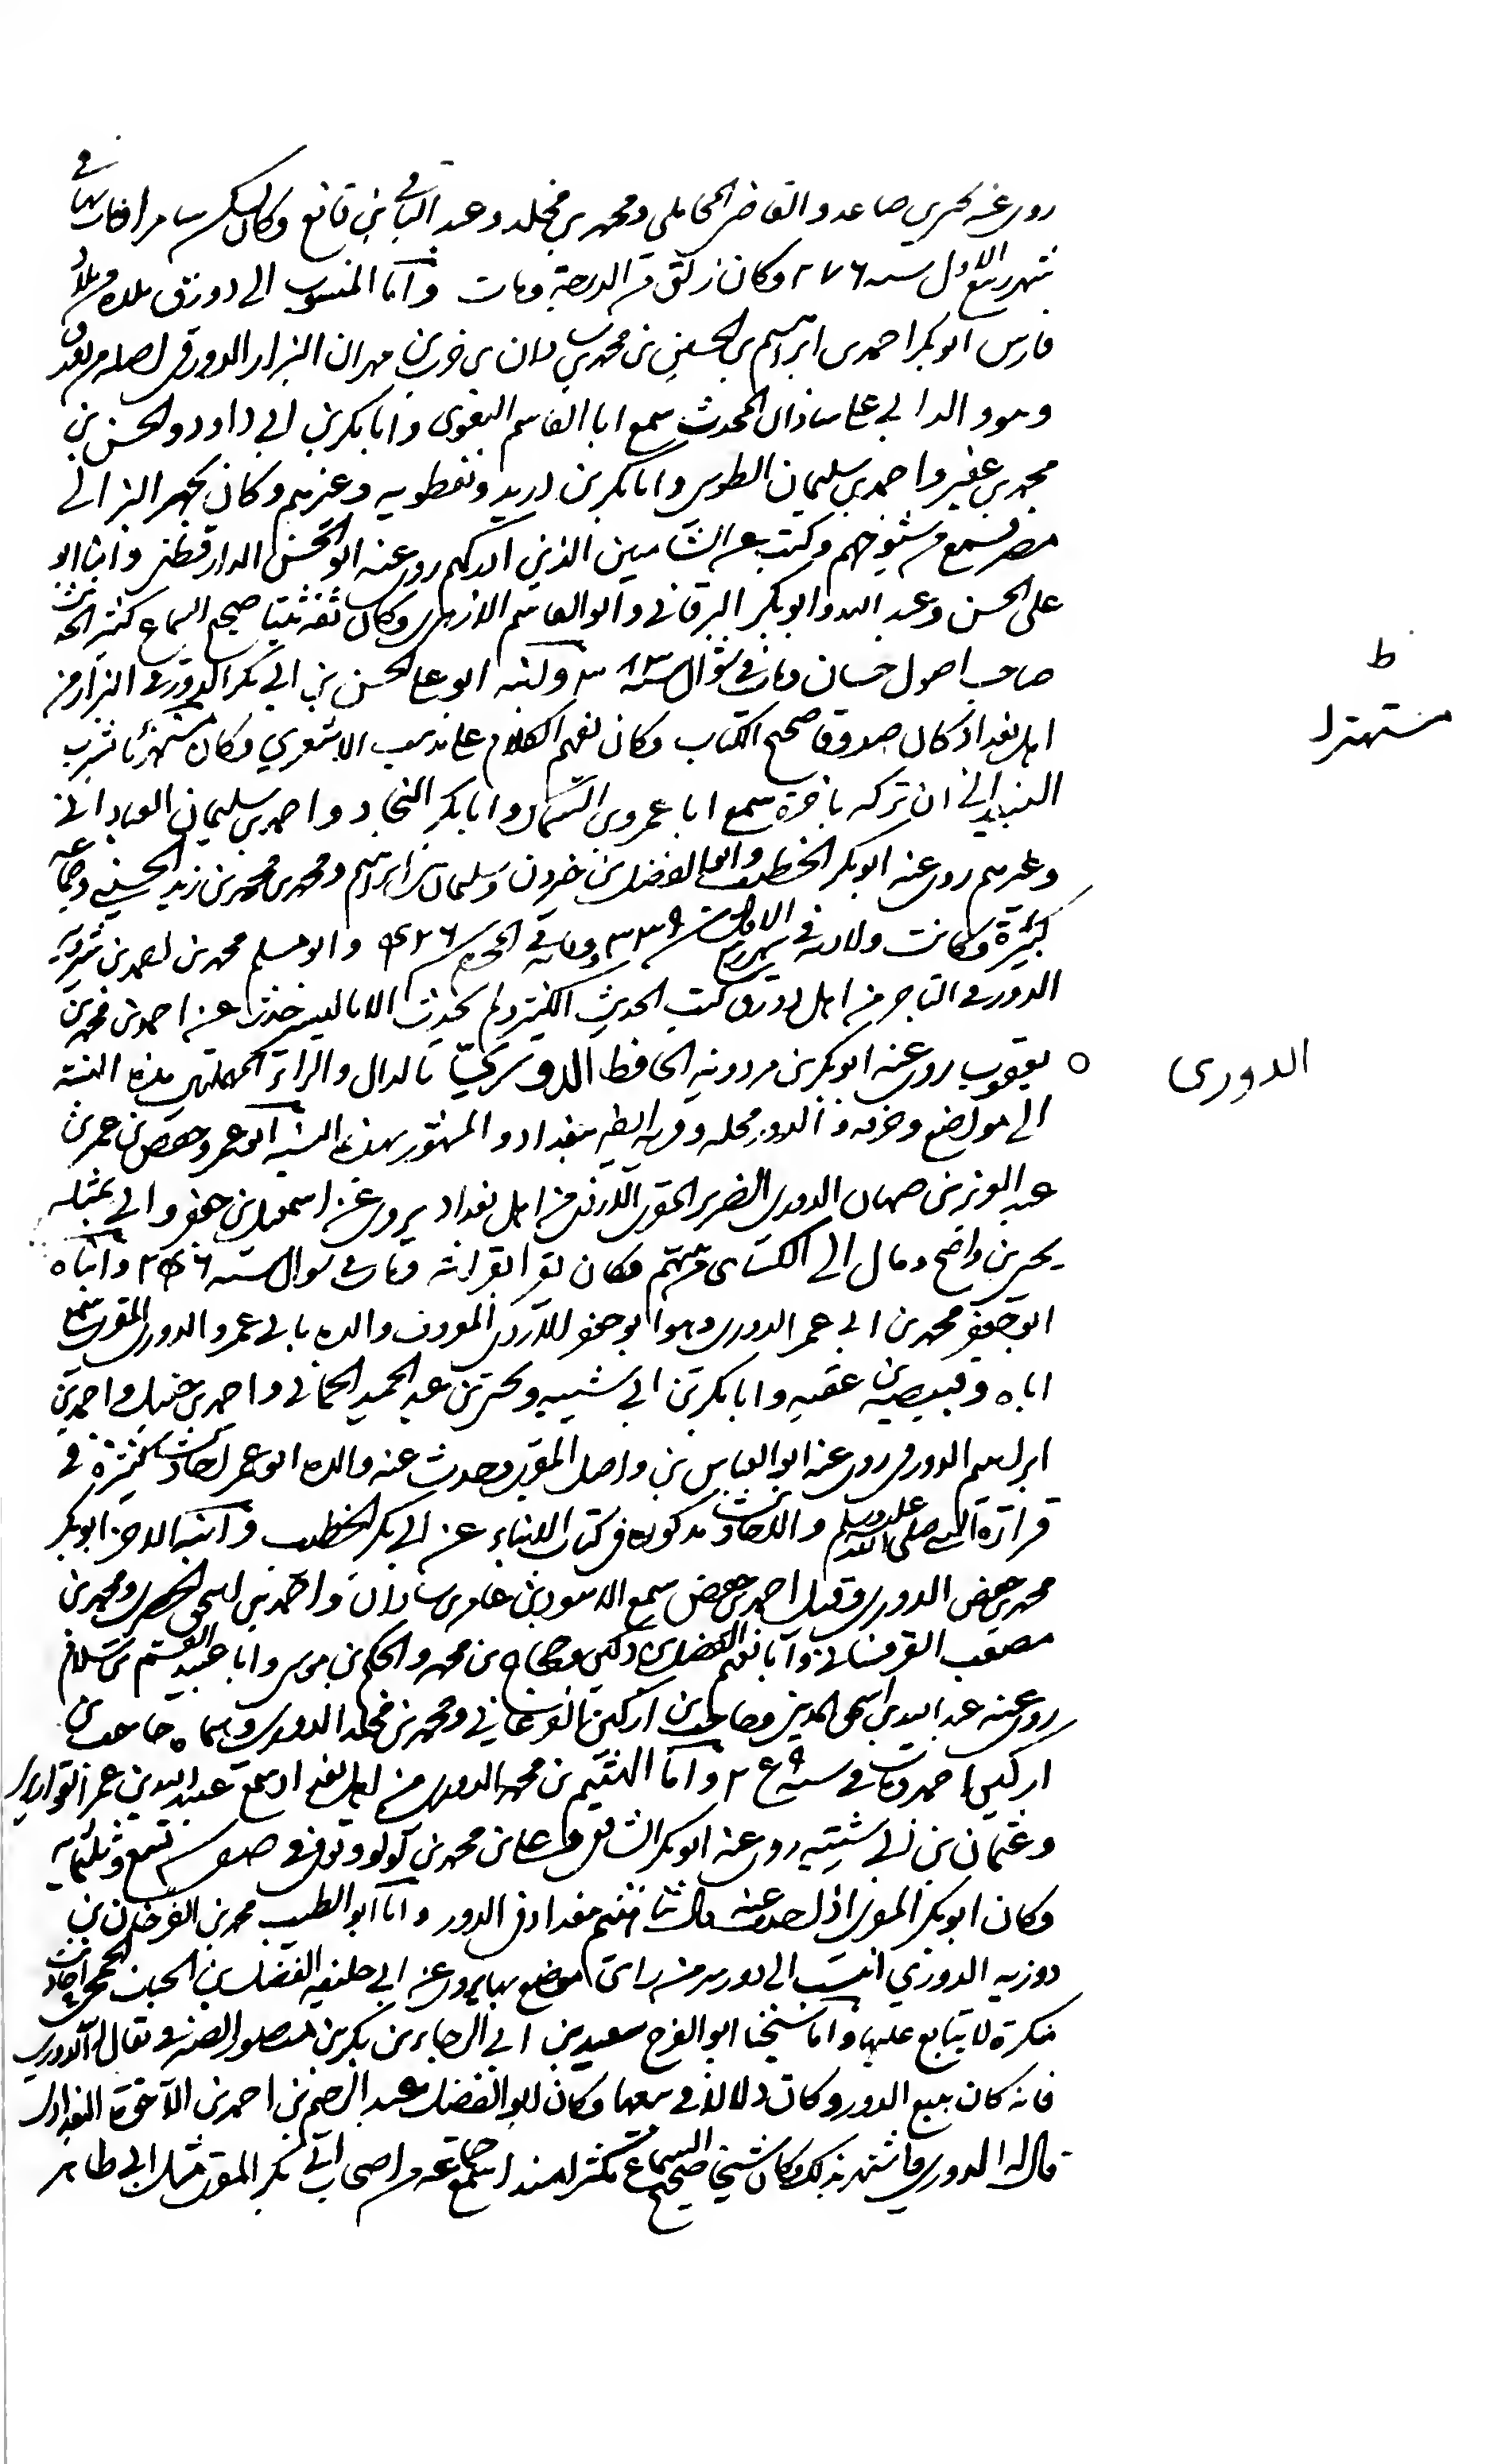 روى عنه يحيى بن صاعد والقاضى المحاملي ومحمد بن مخلد وعبد الباقي بن قانع وكان يسكن سامرا فمات بها في
شهر ربيع الاول سنه ٢٧٦ وكان زلق من الدرجة ومات واما المنسوب الى دورق بلدة من بلاد
فارس ابو بكر احمد بن ابراهيم بن الحسن بن محمد بن شاذان بن حرب بن مهران البزاز الدورقى اصله من دورق
وهو والد ابي على بن شاذان المحدث سمع ابا القاسم البغوى وابا بكر بن ابي داود والحسن بن
محمد بن عفير واحمد بن سليمان الطوسى وابا بكر بن دريد ونفطويه وغيرهم وكان يجهز البز الى
مصر فسمع من شيوخهم وكتب عن الشاميين الذين ادركهم روى عنه ابو الحسن الدارقطنى وابناه ابو
على الحسن وعبد الله وابو بكر البرقاني وابو القاسم الازهرى وكان ثقه ثبتا صحيح السماع كثير الحديث
صاحب اصول حسان ومات فى شوال سنه ٣٨٣ وابنه ابو على الحسن بن ابي بكر الدورقي البزاز من
اهل بغداد كان صدوقا صحيح الكتاب وكان يفهم الكلام على مذهب الاشعري وكان مستهزئا بشرب
النبيذ الى ان تركه باخرة سمع ابا عمرو بن السماك وابا بكر النجاد واحمد بن سليمان العباداني
وغيرهم روى عنه ابو بكر الخطيب وابو الفضل بن خيرون وسليمان بن ابراهيم ومحمد بن محمد بن زيد الحسيني وجماعه
كثيرة وكانت ولادته في شهر ربيع الاول سنه ٣٣٩ ووفاته في المحرم سنه ٤٢٦ وابو مسلم محمد بن احمد بن شيرويه
الدورقي التاجر من اهل دورق كتب الحديث الكثير ولم يحدث الا باليسير حدث عن احمد بن محمد بن
يعقوب روى عنه ابو بكر بن مردويه الحافظ الدوريّ بالدال والراء المهملتين هذه النسبة
الى مواضع وحرفه فالدور محله وقريه ايضا ببغداد والمشهور بهذه النسبه ابو عمر وحفص بن عمر بن
عبد العزيز بن صهبان الدورى الضرير المقرى الازدى من اهل بغداد يروى عن اسمعيل بن جعفر وابي تميله
يحيى بن واضح ومال الى الكسائى من بينهم وكان يقرا بقرائته ومات في شوال سنه ٢٤٦ وابناه
ابو جعفر محمد بن ابي عمر الدورى وهو ابو جعفر الازدى المعروف والده بابي عمرو الدورى المقرى سمع
اباه وقبيصة بن عقبه وابا بكر بن ابي شيبه ويحيى بن عبد الحميد الحماني واحمد بن حنبل واحمد بن
ابراهيم الدورقى روى عنه ابو العباس بن واصل المقرى وحدث عنه والده ابو عمر احاديث كثيرة في
قراءة النبي صلى الله عليه وسلم والاحاديث مذكوره فى كتاب الابناء عن ابي بكر الخطيب وابنه الاخر ابو بكر
محمد بن حفص الدورى وقيل احمد بن حفص سمع الاسود بن عامر شاذان واحمد بن اسحق الحضرمى ومحمد بن
مصعب القرقسانى وابا نعيم الفضل بن دكين وحجاج بن محمد والحكم بن موسى وابا عبيد القسم بن سلام
روى عنه عبد الله بن اسحق المدينى وحاجب بن اركين الفرغاني ومحمد بن مخلد الدورى وسماه حاجب بن
اركين احمد ومات في سنه ٢٤٩ واما الهيثم بن محمد الدورى من اهل بغداد سمع عبيد الله بن عمر القواريرى
وعثمان بن ابي شيبه روى عنه ابو بكر الشافعى وعلى بن محمد بن لولو وتوفى فى صفر سنه تسع وثلثمايه
وكان ابو بكر المقرى اذا حدث عنه قال ثنا هيثم ببغداد فى الدور واما ابو الطيب محمد بن الفرخان بن
روزبه الدوري انتسب الى دور سر من راى موضع بها يروى عن ابي خليفه الفضل بن الحباب الجمحى احاديث
منكرة لا يتابع عليها واما شيخنا ابو الفرج سعيد بن ابي الرجاء بن بكر بن منصور الصيرفى يقال له الدورى
فانه كان يبيع الدور وكان دلالا فى بيعها وكان ابو الفضل عبد الرحيم بن احمد بن الاخوة البغدادى
قال له الدورى فاشتهر بذلك وكان شيخا صحيح السماع مكثرا مسندا سمع جماعة من اصحاب ابي بكر المقرى مثل ابي طاهر
ط
مستهترا
الدورى